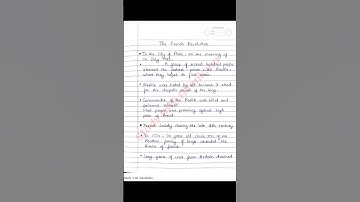 The French Revolution
• In the city of Paris, on the morning of
14 July 1789,
A group of several hundred people
stormed the
where they hoped to find
• Bastille was hated by all because it stood
for the despotic power of the king.
• Commander of the Bastille was killed and
prisoners released
• Most people were protesting against high
price of bread.
• French Society during the late 18th century
• In 1774, 20 year old Louis XVI of the
Bourbon family of kings ascended the
throne of France
• Long years of war